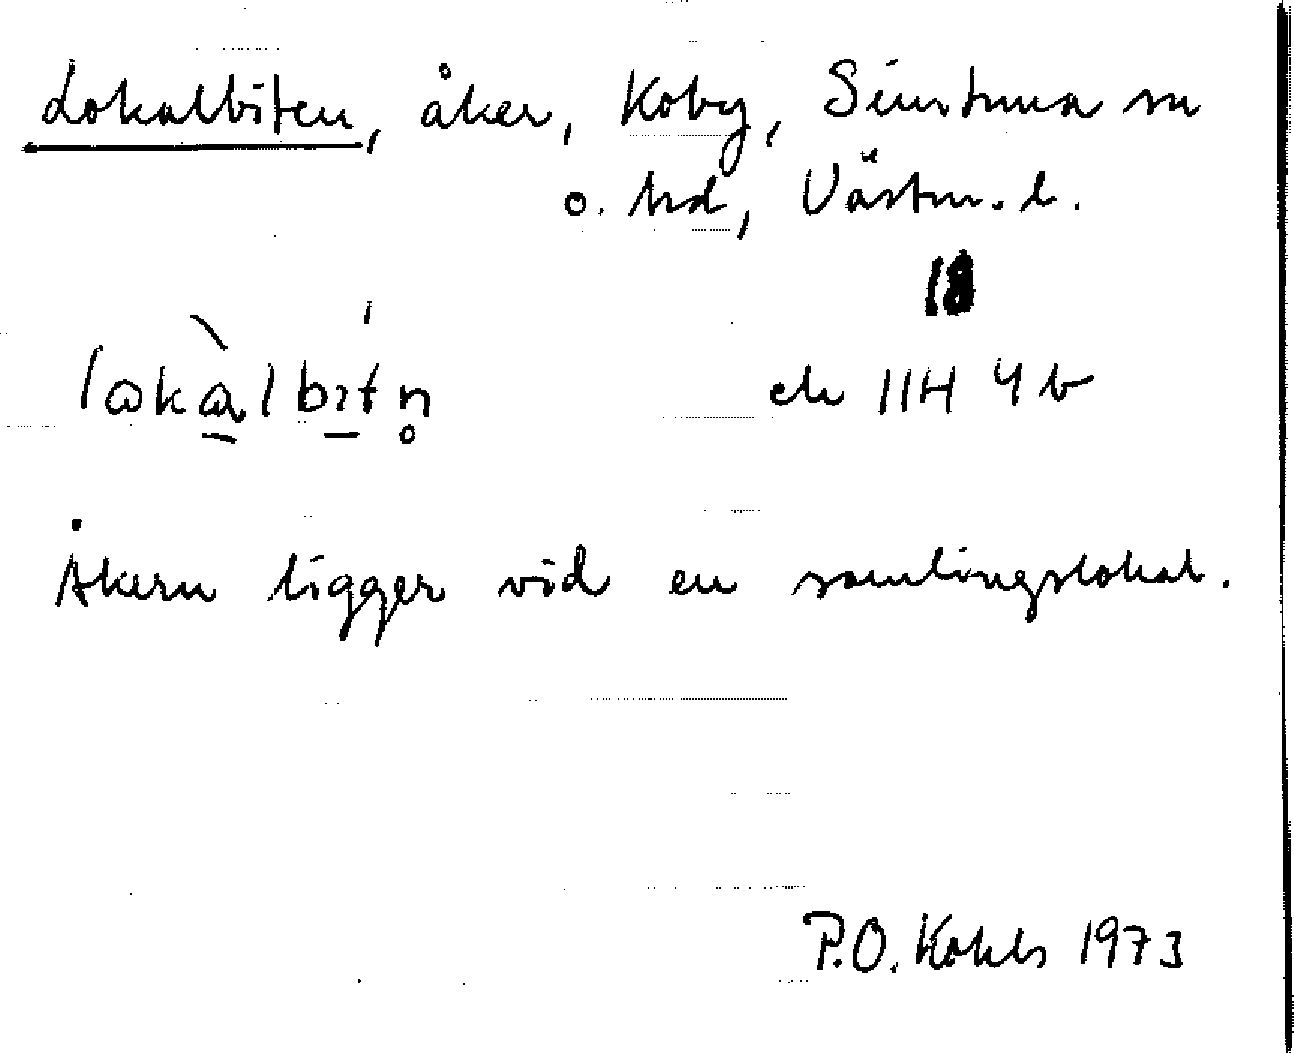 Lokalbiten, åker, Koby, Simtuna sn
o. hd, Västm. l.
18
ek 11H 4b
Åkern ligger vid en samlingslokal.
P.O. 1973